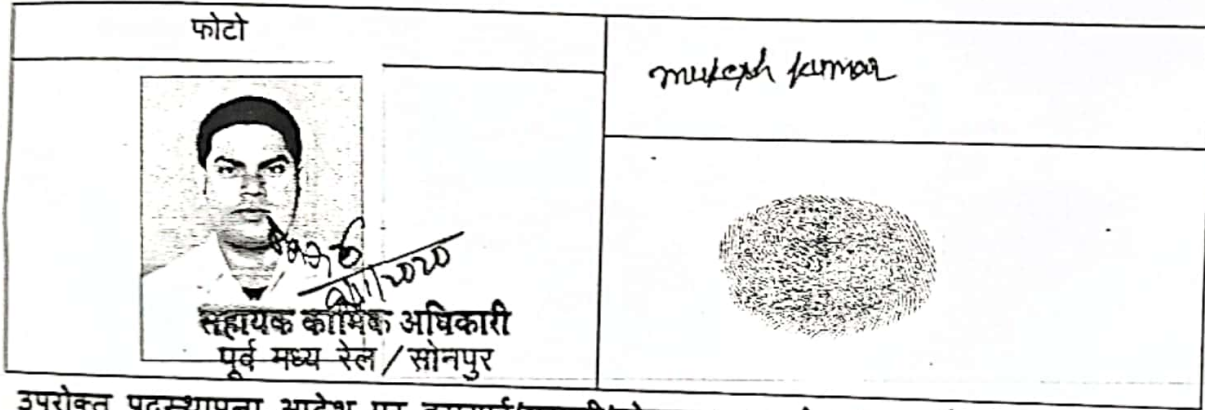 फोटो
mukesh kumar
/2020
सहायक कार्मिक अधिकारी
पूर्व मध्य रेल / सोनपुर
उपरोक्त पदस्थापना आदेश